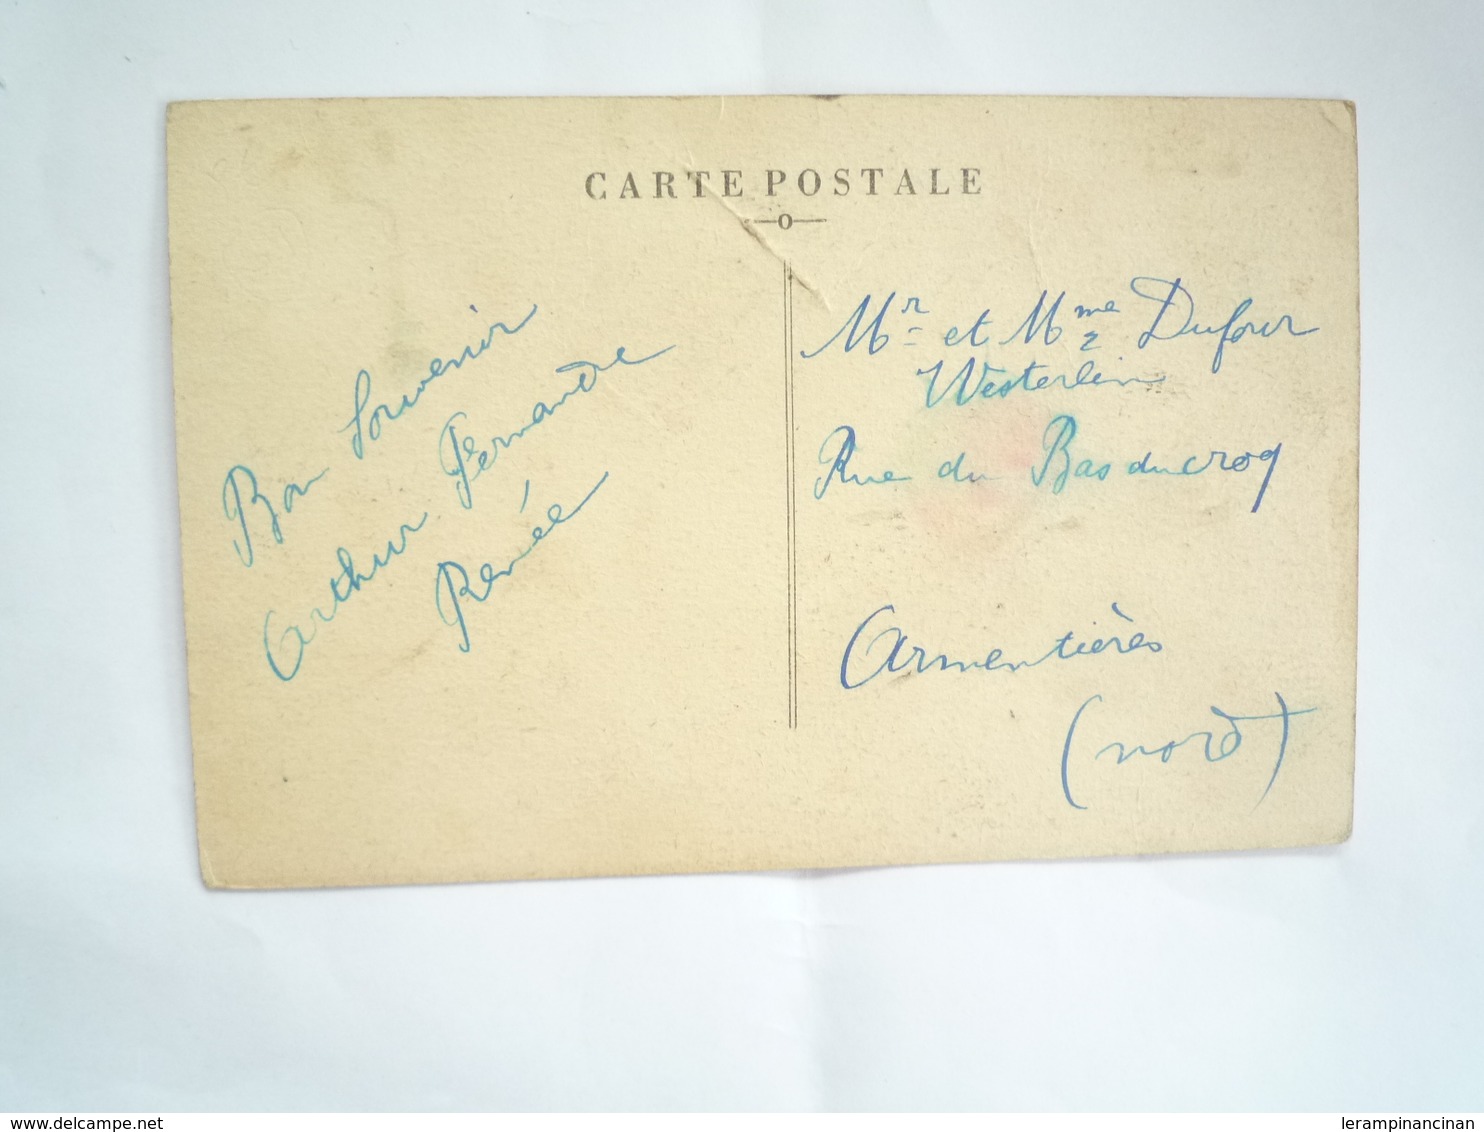 CARTE POSTALE
Bon Souvenir
Arthur Fernande
Renée
Mr et Mme Dufour
Westerlin
Rue du Bas ducroq
Armentières
(nord)
www.delcampe.net
lerampinancinan